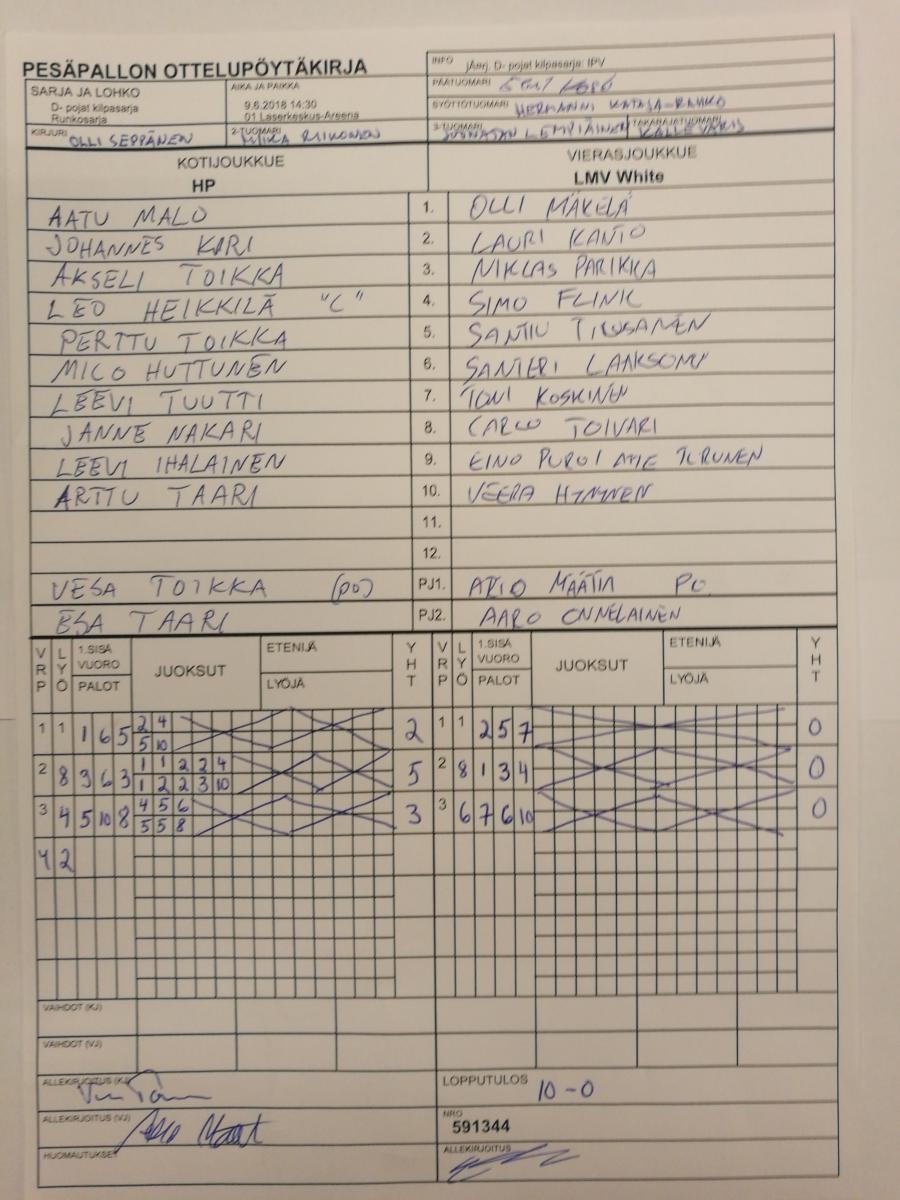 PESÄPALLON OTTELUPÖYTÄKIRJA
INFO Järj. D- pojat kilpasarja: IPV
PÄÄTUOMARI
SARJA JA LOHKO
D- pojat kilpasarja
Runkosarja
AIKA JA PAIKKA
9.6.2018 14:30
01 Laserkeskus-Areena
SYÖTTÖTUOMARI HERMANNI KATAJA-RAHKO
KIRJURI OLLI SEPPÄNEN
2-TUOMARI MIIKA RIIKONEN
3-TUOMARI JOONATAN LEMPIÄINEN
TAKARAJATUOMARI KALLE VARIS
KOTIJOUKKUE
HP
VIERASJOUKKUE
LMV White
AATU MALO 1. OLLI MÄKELÄ
JOHANNES KARI 2. LAURI KANTO
AKSELI TOIKKA 3. NIKLAS PARIKKA
LEO HEIKKILÄ "C" 4. SIMO FLINK
PERTTU TOIKKA 5. SANTTU
MICO HUTTUNEN 6. SANTERI LAAKSONEN
LEEVI TUUTTI 7. TONI KOSKINEN
JANNE NAKARI 8. TOIVARI
LEEVI IHALAINEN 9. EINO TURUNEN
ARTTU TAARI 10. VEERA HYNYNEN
11.
12.
VESA TOIKKA (PO) PJ1. MÄÄTTÄ PO.
ESA TAARI PJ2. AARO ONNELAINEN
VRP LYÖ 1.SISÄ VUORO PALOT JUOKSUT ETENIJÄ LYÖJÄ YHT VRP LYÖ 1.SISÄ VUORO PALOT JUOKSUT ETENIJÄ LYÖJÄ YHT
1 1 1 6 5 2 4 2 1 1 2 5 7 0
5 10
2 8 9 6 3 1 1 2 2 4 5 2 8 1 3 4 0
1 2 2 3 10
3 4 5 10 8 4 5 6 3 3 6 7 6 10 0
5 5 8
4 2
VAIHDOT (KJ)
VAIHDOT (VJ)
ALLEKIRJOITUS (KJ)
LOPPUTULOS 10-0
ALLEKIRJOITUS (VJ)
NRO
591344
HUOMAUTUKSET
ALLEKIRJOITUS